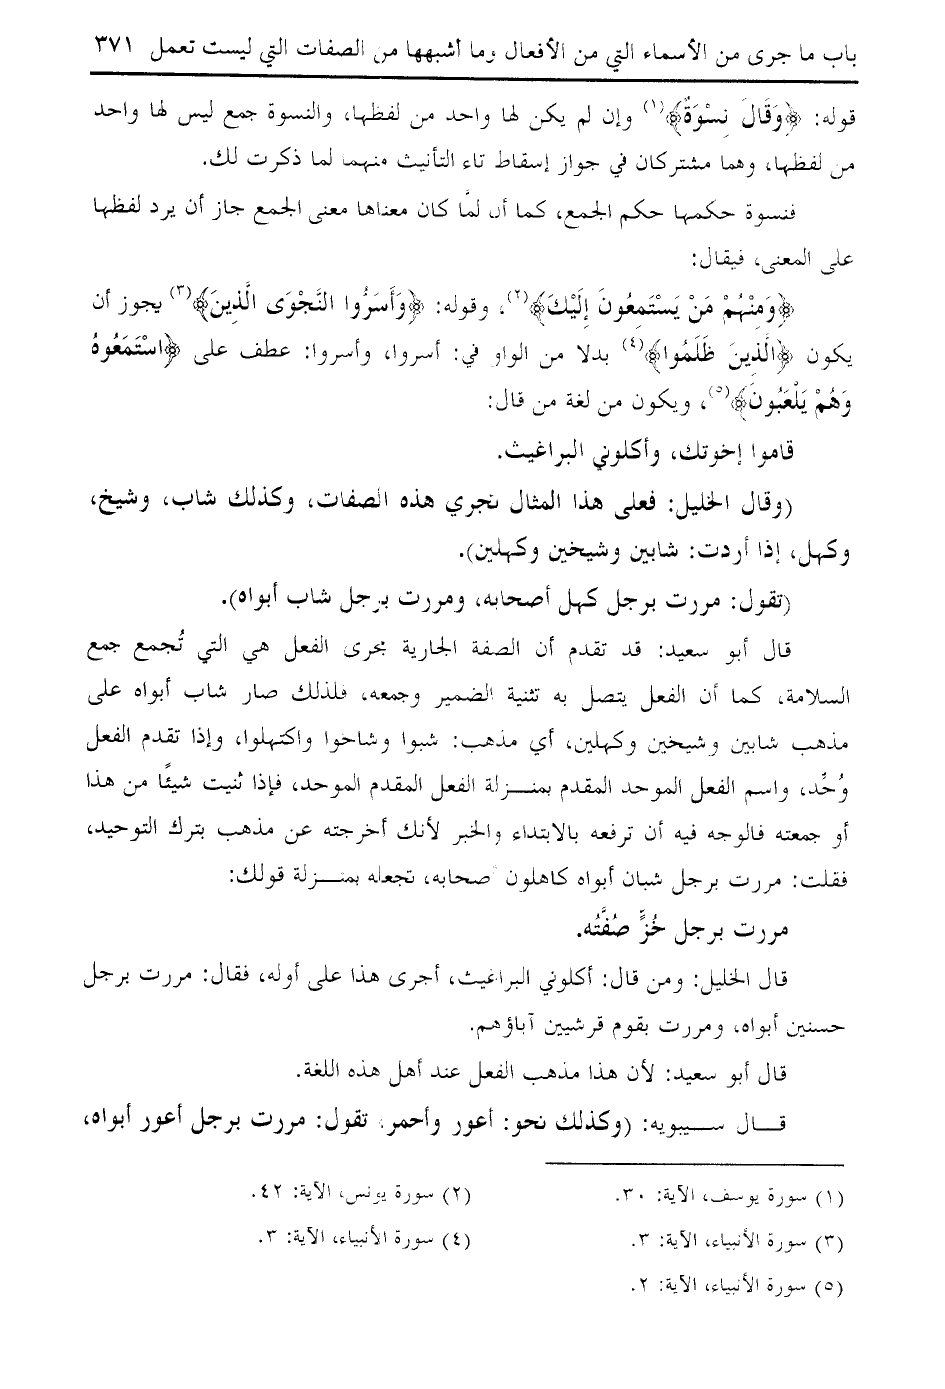 باب ما جرى من الأسماء التي من الأفعال وما أشبهها من الصفات التي ليست تعمل ٣٧١
قوله: ﴿وَقَالَ نِسْوَةٌ﴾(١) وإن لم يكن لها واحد من لفظها، والنسوة جمع ليس لها واحد
من لفظها، وهما مشتركان في جواز إسقاط تاء التأنيث منهما لما ذكرت لك.
فنسوة حكمها حكم الجمع، كما أن لمَّا كان معناها معنى الجمع جاز أن يرد لفظها
على المعنى، فيقال:
﴿وَمِنْهُمْ مَنْ يَسْتَمِعُونَ إِلَيْكَ﴾(٢)، وقوله: ﴿وَأَسَرُّوا النَّجْوَى الَّذِينَ﴾(٣) يجوز أن
يكون ﴿الَّذِينَ ظَلَمُوا﴾(٤) بدلا من الواو في: أسروا، وأسروا: عطف على ﴿اسْتَمَعُوهُ
وَهُمْ يَلْعَبُونَ﴾(٥)، ويكون من لغة من قال:
قاموا إخوتك، وأكلوني البراغيث.
(وقال الخليل: فعلى هذا المثال تجري هذه الصفات، وكذلك شاب، وشيخ،
وكهل، إذا أردت: شابين وشيخين وكهلين).
(تقول: مررت برجل كهل أصحابه، ومررت برجل شاب أبواه).
قال أبو سعيد: قد تقدم أن الصفة الجارية مجرى الفعل هي التي تُجمع جمع
السلامة، كما أن الفعل يتصل به تثنية الضمير وجمعه، فلذلك صار شاب أبواه على
مذهب شابين وشيخين وكهلين، أي مذهب: شبوا وشاخوا واكتهلوا، وإذا تقدم الفعل
وُحِّد، واسم الفعل الموحد المقدم بمنــزلة الفعل المقدم الموحد، فإذا ثنيت شيئًا من هذا
أو جمعته فالوجه فيه أن ترفعه بالابتداء والخبر لأنك أخرجته عن مذهب بترك التوحيد،
فقلت: مررت برجل شبان أبواه كاهلون صحابه، تجعله بمنــزلة قولك:
مررت برجل خُزٍّ صُفَّتُه.
قال الخليل: ومن قال: أكلوني البراغيث، أجرى هذا على أوله، فقال: مررت برجل
حسنين أبواه، ومررت بقوم قرشيين آباؤهم.
قال أبو سعيد: لأن هذا مذهب الفعل عند أهل هذه اللغة.
قــال ســيبويه: (وكذلك نحو: أعور وأحمر، تقول: مررت برجل أعور أبواه،
(١) سورة يوسف، الآية: ٣٠.
(٢) سورة يونس، الآية: ٤٢.
(٣) سورة الأنبياء، الآية: ٣.
(٤) سورة الأنبياء، الآية: ٣.
(٥) سورة الأنبياء، الآية: ٢.